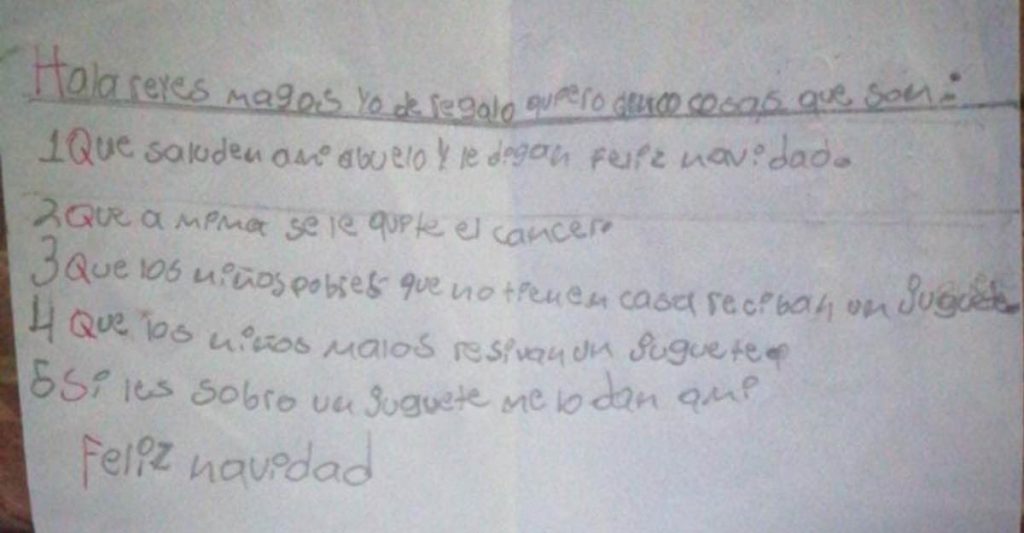 Hola reyes magos Yo de regalo quiero cinco cosas que son:
1 Que saluden a mi abuelo Y le digan Feliz navidad.
2 Que a mima se le quite el cancer.
3 Que los niños pobres que no tienen casa reciban un Juguete.
4 Que los niños malos resivan un Juguete
5 Si les sobro un Juguete me lo dan a mi
Feliz navidad